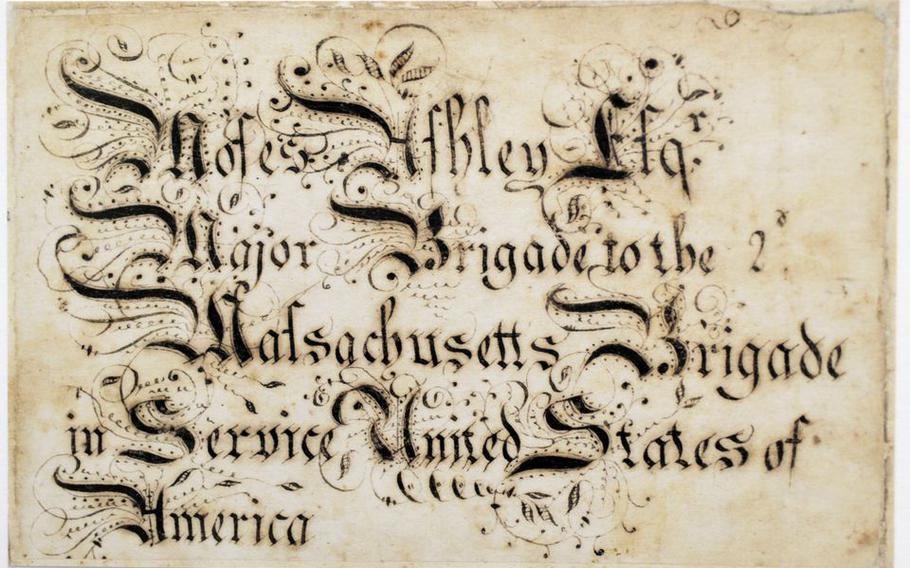 Moſes Aſhley Eſqʳ
Major Brigade to the 2ᵈ
Maſsachusetts Brigade
in Service United States of
America